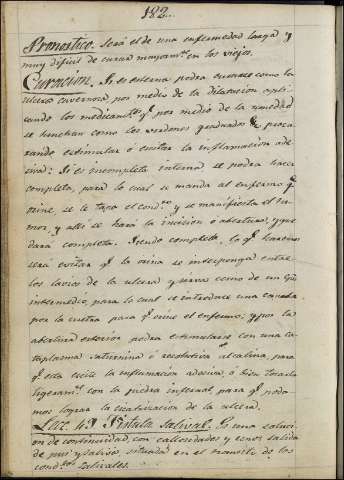 182.
Pronostico. Será el de una enfermedad larga y
muy dificil de curar mayormte. en los viejos.
Curacion. Si es esterna podra curarse como la
ulcera cavernosa, por medio de la dilatacion apli-
cando los medicamtos. qe. por medio de la
se hinchan como los verdones graduados procu-
rando estimular ó escitar la inflamacion ade-
siva: Si es incompleta interna se podra hacer
completa, para lo cual se manda al enfermo qe.
orine, se le tapa el condto. y se manifiesta el tu-
mor, y alli se hará la incision ó abertura, y que
dará completa. Siendo completa, lo qe. haremos
será evitar qe. la orina se interponga entre
los lavios de la ulcera y sirva como de un cpo.
intermedio, para lo cual se introduce una canula
por la uretra para qe. orine el enfermo; y por la
abertura esterior podra estimularse con una ca-
taplasma saturnina ó resolutiva alcalina, para
qe. esta escite la inflamacion adesiva ó bien tocarla
ligeramte. con la piedra infernal, para qe. poda-
mos lograr la cicatrizacion de la ulcera.
Lecc. 49 Fistula Salival. Es una solucion
on de continuidad, con callosidades y cenos, salida
de pus y saliva, situada en el transito de los
condtos. salivales.